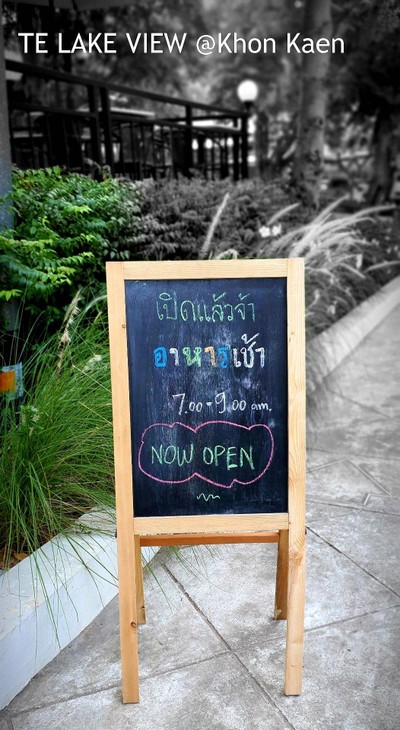 TE LAKE VIEW @Khon Kaen
เปิดแล้วจ้า
อาหารเช้า
7.00-9.00 am.
NOW OPEN